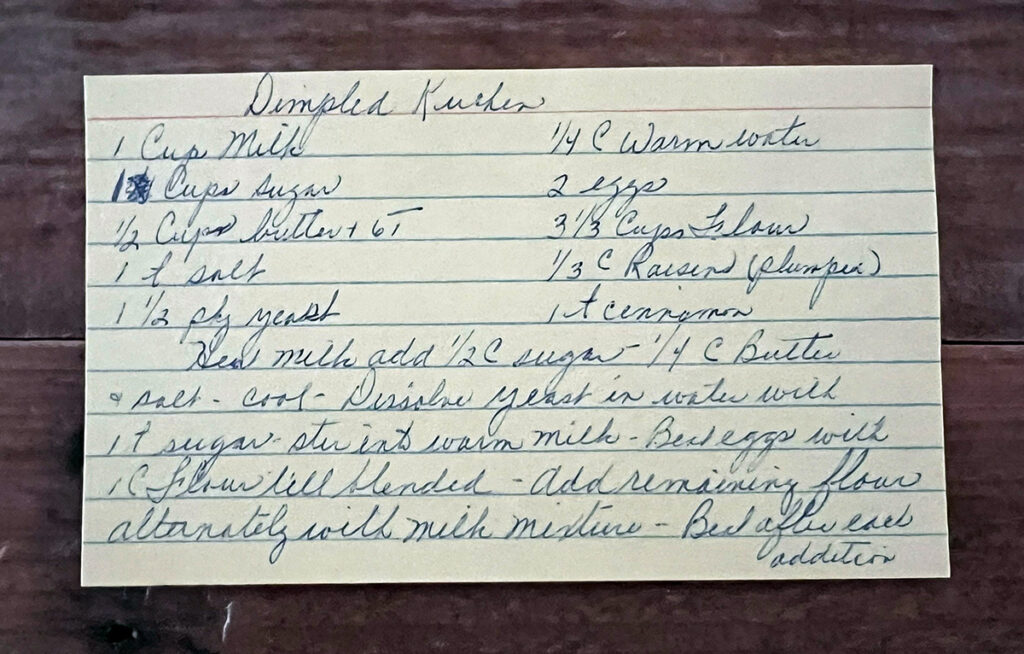 Dimpled Kuchen
1 Cup Milk 1/4 C Warm water
1 Cups sugar 2 eggs
1/2 Cups butter + 6T 3 1/3 Cups Flour
1 t salt 1/3 C Raisens (plumped)
1 1/2 pkg yeast 1 t cennamon
Heat milk add 1/2 C sugar - 1/4 C Butter
& salt - cool - Dissolve yeast in water with
1 t sugar - stir into warm milk - Beat eggs with
1 C Flour till blended - add remaining flour
alternately with milk mixture - Beat after each
addition